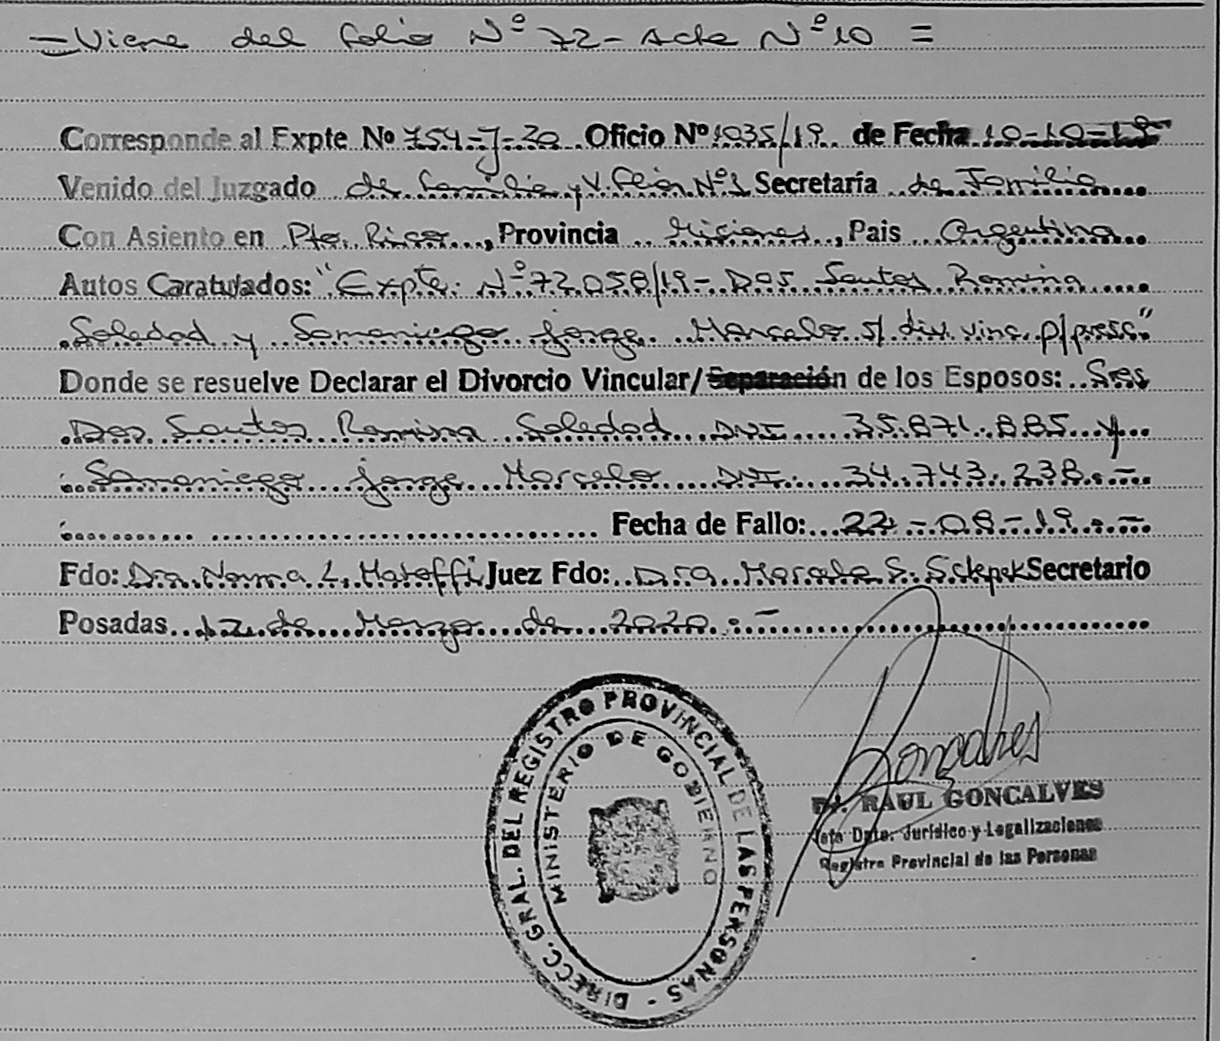 =Viene del folio Nº 72- Acta Nº 10 =
Corresponde al Expte Nº 754-J-20 Oficio Nº 1035/19 de Fecha 10-10-19
Venido del Juzgado de Familia y V. Flia. Nº 1 Secretaría de Familia
Con Asiento en Pto. Rico, Provincia Misiones, Pais Argentina
Autos Caratulados: "Expte. Nº 72.058/19- Dos Santos Romina
Soledad y Samaniego Jorge Marcelo s/ div. vinc. p/presc"
Donde se resuelve Declarar el Divorcio Vincular/Separación de los Esposos: Sres
Dos Santos Romina Soledad DNI 35.871.885 y
Samaniego Jorge Marcelo DNI. 34.743.238.-
Fecha de Fallo: 22-08-19.-
Fdo: Dra. Norma L. Mateffi Juez Fdo: Dra Marcela S. Secretario
Posadas 12 de Marzo de 2020.-
DIRECC. GRAL. DEL REGISTRO PROVINCIAL DE LAS PERSONAS -
MINISTERIO DE GOBIERNO
RAUL GONCALVES
Jefe Dpto: Jurídico y Legalizaciones
Registro Provincial de las Personas